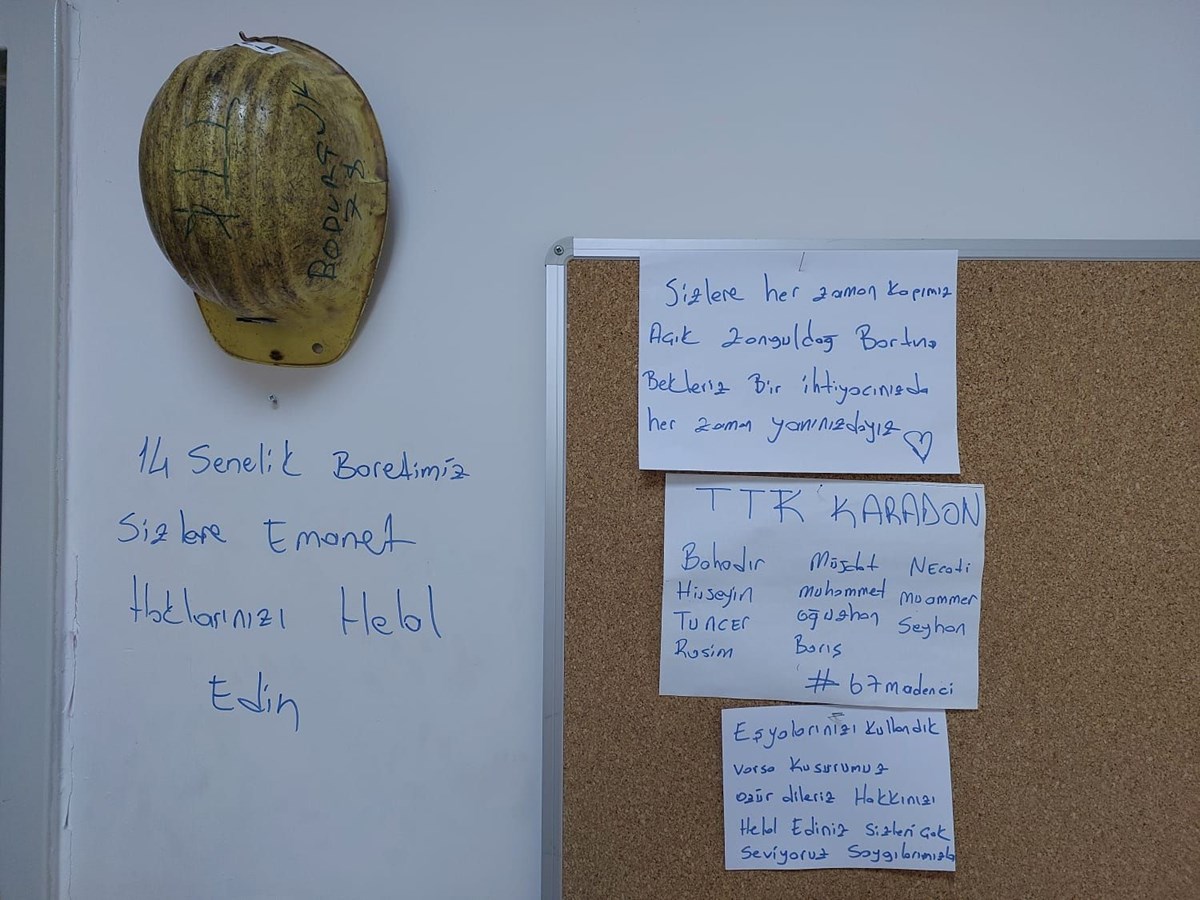 TTK
BODURGUK
78
14 Senelik Baretimiz
Sizlere Emanet
Haklarınızı Helal
Edin
Sizlere her zaman kapımız
Açık Zonguldağ Bartına
Bekleriz Bir ihtiyacınızda
her zaman yanınızdayız ♡
TTK KARADON
Bahadır Müjdat Necati
Hüseyin Muhammet Muammer
Tuncer Oğuzhan Seyhan
Rasim Barış
#67madenci
Eşyalarınızı Kullandık
varsa Kusurumuz
özür dileriz Hakkınızı
Helal Ediniz Sizleri Çok
Seviyoruz Saygılarımızla